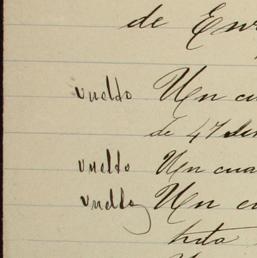 de En
vuelto Un cu
de 47 dm
vuelto Un cua
vuelto Un cu